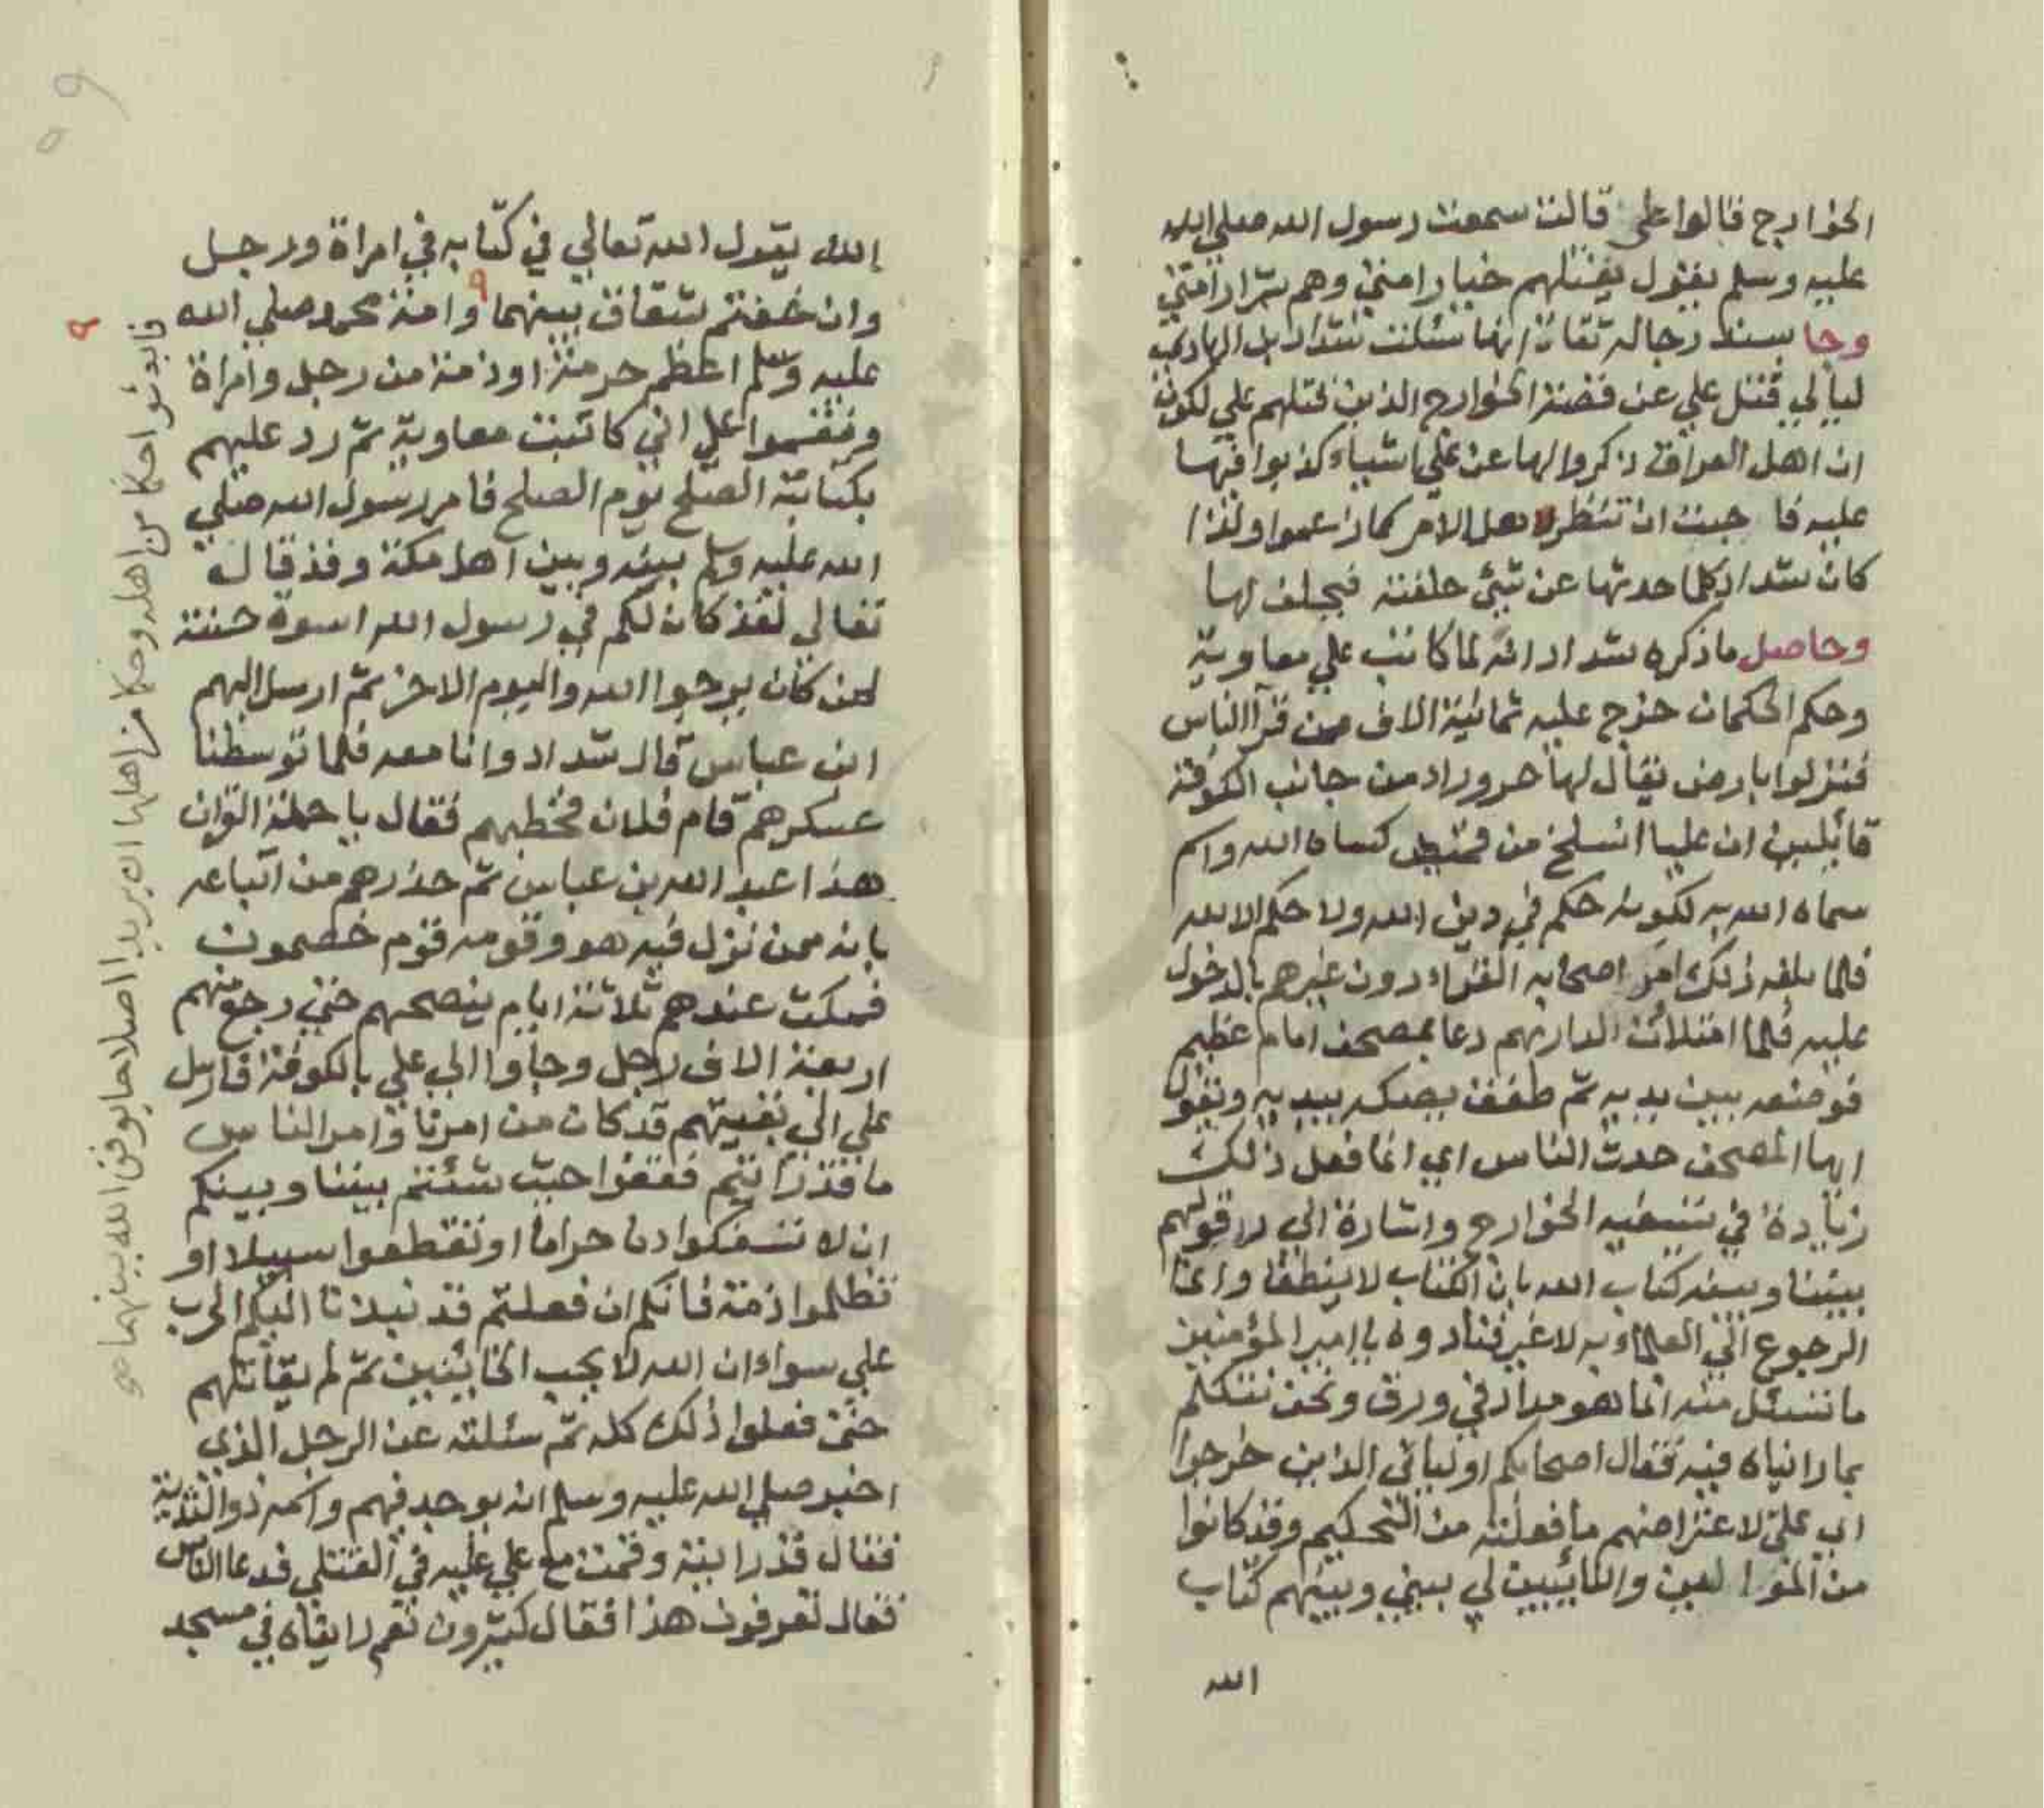 الخوارج قالوا على قالت سمعت رسول الله صلي الله
عليه وسلم يقول يقتلهم خيار امتي وهم شرار امتي
وجا بسند رجاله ثقات انها سئلت شداد بن الهادي
ليالي قتل علي عن قصة الخوارج الذين قتلهم علي لكون
ان اهل العراق ذكروا لها عن علي اشياء كذبوا فيها
عليه فا حبت ان تنظر هل الامر كما زعموا ولذا
كان شداد كلما حدثها عن شئ حلفته فيحلف لها
وحاصل ما ذكره شداد انه لما كاتب علي معاوية
وحكم الحكمان خرج عليه ثمانية الاف من قرآ الناس
فنزلوا بارض يقال لها حرورا من جانب الكوفة
قائلين ان عليا انسلخ من قميص كساه الله واسم
سماه الله به لكونه حكم في دين الله ولا حكم الا لله
فلما بلغه ذلك امر اصحابه القراء دون غيرهم بالدخول
عليه فلما امتلأت الدار بهم دعا بمصحف امام عظيم
فوضعه بين يديه ثم طفق يصكه بيديه ويقول
ايها المصحف حدث الناس اي انما فعل ذلك
زيادة في تسفيه الخوارج واشارة الى رد قولهم
بيننا وبينه كتاب الله بان الكتاب لا ينطق وانما
الرجوع الي العلماء به لا غير فنادوه يا امير المؤمنين
ما تسئل منه انما هو مداد في ورق ونحن نتكلم
بما راينياه فيه فقال اصحابكم اوليائي الذين خرجوا
اي على لاعتراضهم ما فعلته من التحكيم وقد كانوا
من الموالين والتائبين لي بيني وبينهم كتاب
الله
الله يقول الله تعالي في كتابه في امراة ورجل
وان خفتم شقاق بينهما ٩ وامة محمد صلي الله
عليه وسلم اعظم حرمة او ذمة من رجل وامراة
ونقموا علي اني كاتبت معاوية ثم رد عليهم
بكتابة الصلح يوم الصلح فامر رسول الله صلي
الله عليه وسلم بينه وبين اهل مكة وقد قال
تعالي لقد كان لكم في رسول الله اسوة حسنة
لمن كان يرجوا الله واليوم الاخر ثم ارسل اليهم
ابن عباس قال شداد وانا معه فلما توسطنا
عسكرهم قام فلان فخطبهم فقال يا حملة القران
هذا عبد الله بن عباس ثم حذرهم من اتباعه
بانه ممن نزل فيه هو وقومه قوم خصمون
فمكث عندهم ثلاثة ايام ينصحهم حتي رجع منهم
اربعة الاف رجل وجاوا الي علي بالكوفة فارسل
علي الي بقيتهم قد كان من امرنا وامر الناس
ما قد رايتم فقفوا حيث شئتم بيننا وبينكم
ان لا تسفكوا دما حراما او تقطعوا سبيلا او
تظلموا ذمة فانكم ان فعلتم قد نبذنا اليكم الحرب
علي سواء ان الله لا يحب الخائنين ثم لم يقاتلهم
حتى فعلوا ذلك كله ثم سئلته عن الرجل الذي
اخبر صلي الله عليه وسلم انه يوجد فيهم واسمه ذو الثدية
فقال قد رايته وقمت مع علي عليه في القتلي فدعا الناس
فقال تعرفون هذا فقال كثيرون نعم رايناه في مسجد
٩ فابعثوا حكما من اهله وحكما من اهلها ان يريدا اصلاحا يوفق الله بينهما صح